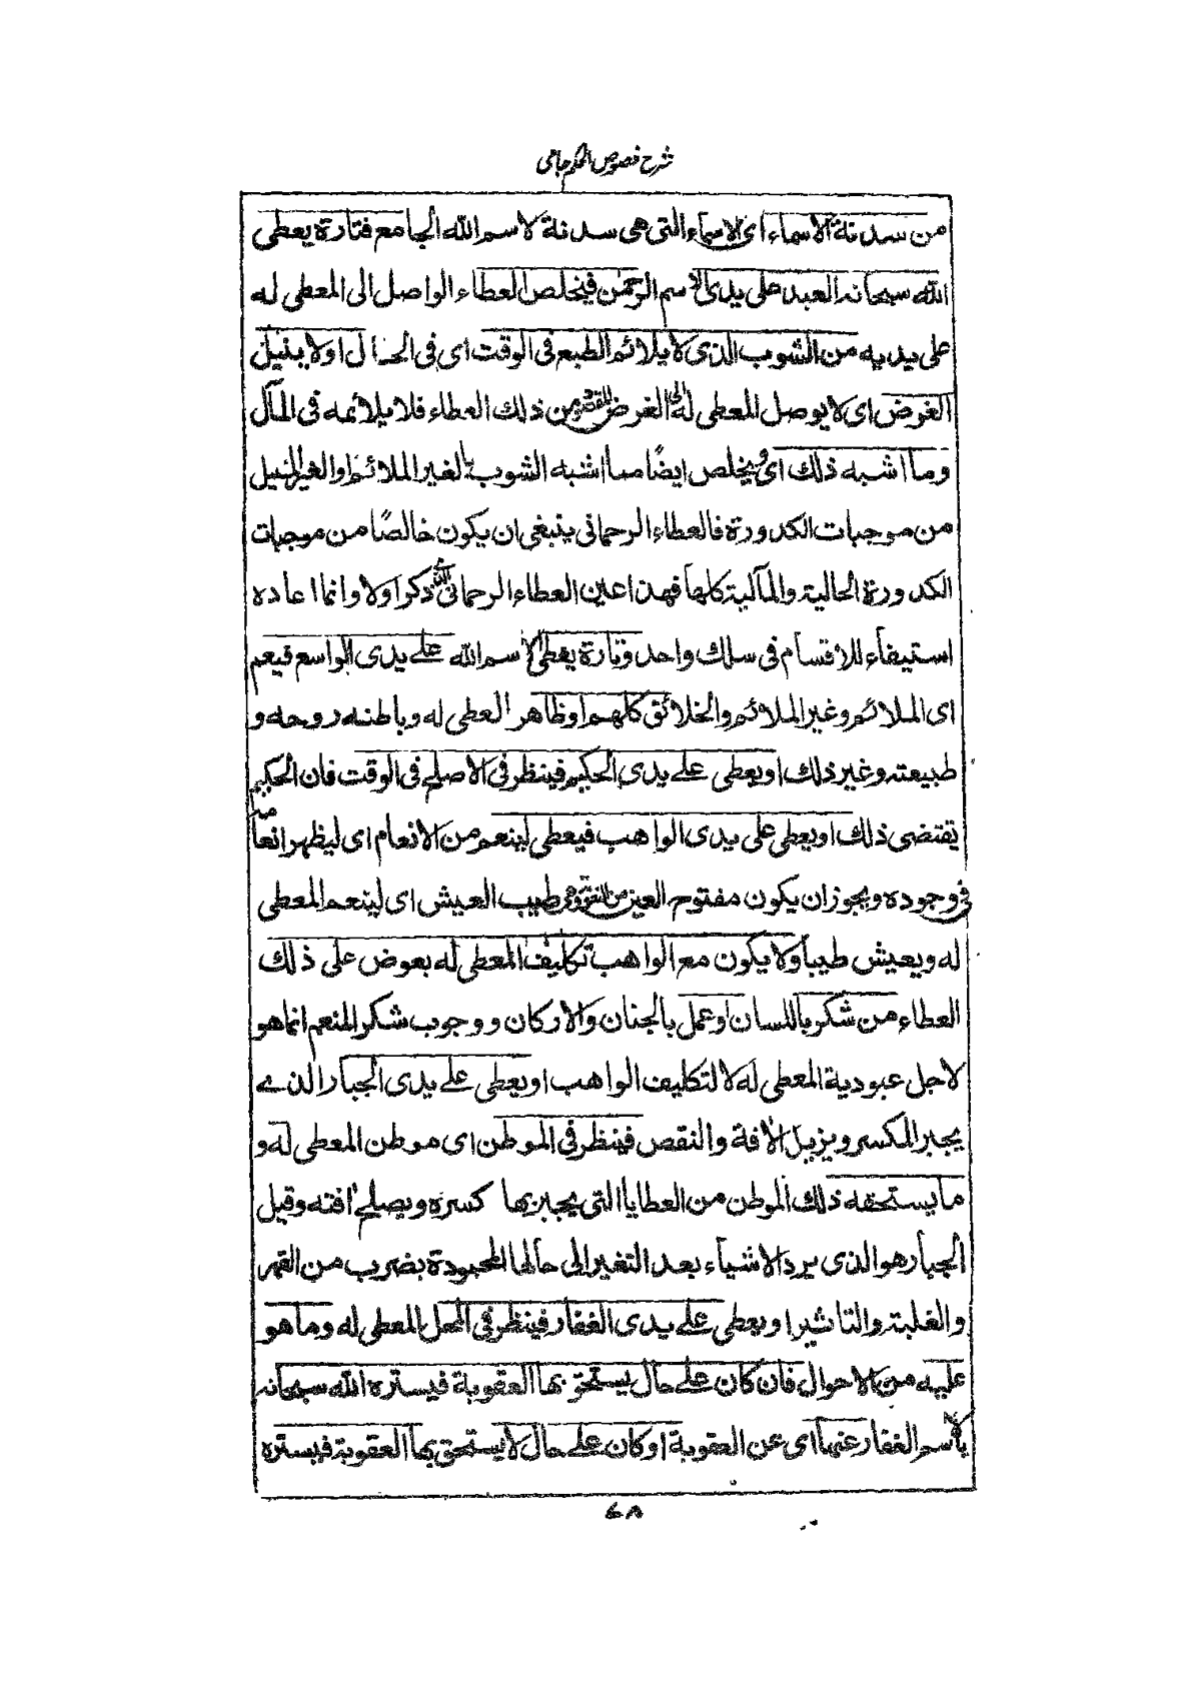 شرح فصوص الحکم جامی
من سدنة الاسماء ای الاسماء التی هی سدنة لاسم الله الجامع فتارة یعطی
الله سبحانه العبد علی یدی الاسم الرحمٰن فیخلص العطاء الواصل الی المعطی له
علی یدیه من الشوب الذی لا یلائم الطبع فی الوقت ای فی الحال اولا ینیل
الغرض ای لا یوصل المعطی له الی الغرض المقصود من ذلك العطاء فلا یلائمه فی المآل
وما اشبه ذلك ای ویخلص ایضًا مما اشبه الشوب الغیر الملائم او الغیر المنیل
من موجبات الکدورة فالعطاء الرحمانی ینبغی ان یکون خالصًا من موجبات
الکدورة الحالیة والمآلیة کلها فهذا عین العطاء الرحمانی الذی ذکر اولا وانما اعاده
استیفاء للاقسام فی سلك واحد وتارة یعطی الاسم الله علے یدی الواسع فیعم
ای الملائم وغیر الملائم والخلائق کلهم او ظاهر المعطی له وباطنه روحه و
طبیعته وغیر ذلك او یعطی علے یدی الحکیم فینظر فی الاصلح فی الوقت فان الحکیم
یقتضی ذلك او یعطی علی یدی الواهب فیعطی لینعم من الانعام ای لیظهر انعامه
فی وجوده ویجوز ان یکون مفتوح العین من النعمة وهی طیب العیش ای لینعم المعطی
له ویعیش طیبا ولا یکون مع الواهب تکلیف المعطی له بعوض علی ذلك
العطاء من شکر باللسان او عمل بالجنان والارکان ووجوب شکر المنعم انما هو
لاجل عبودیة المعطی له لا لتکلیف الواهب او یعطی علے یدی الجبار الذے
یجبر الکسر ویزیل الآفة والنقص فینظر فی الموطن ای موطن المعطی له و
ما یستحقه ذلك الموطن من العطایا التی یجبر بها کسره ویصلح آفته وقیل
الجبار هو الذی یرد الاشیاء بعد التغیر الی حالها المحمودة بضرب من القهر
والغلبة والتاثیر او یعطی علے یدی الغفار فینظر فی المحل المعطی له وما هو
علیه من الاحوال فان کان علے حال یستحق بها العقوبة فیستره الله سبحانه
بالاسم الغفار عنها ای عن العقوبة او کان علے حال لا یستحق بها العقوبة فیستره
۶۸